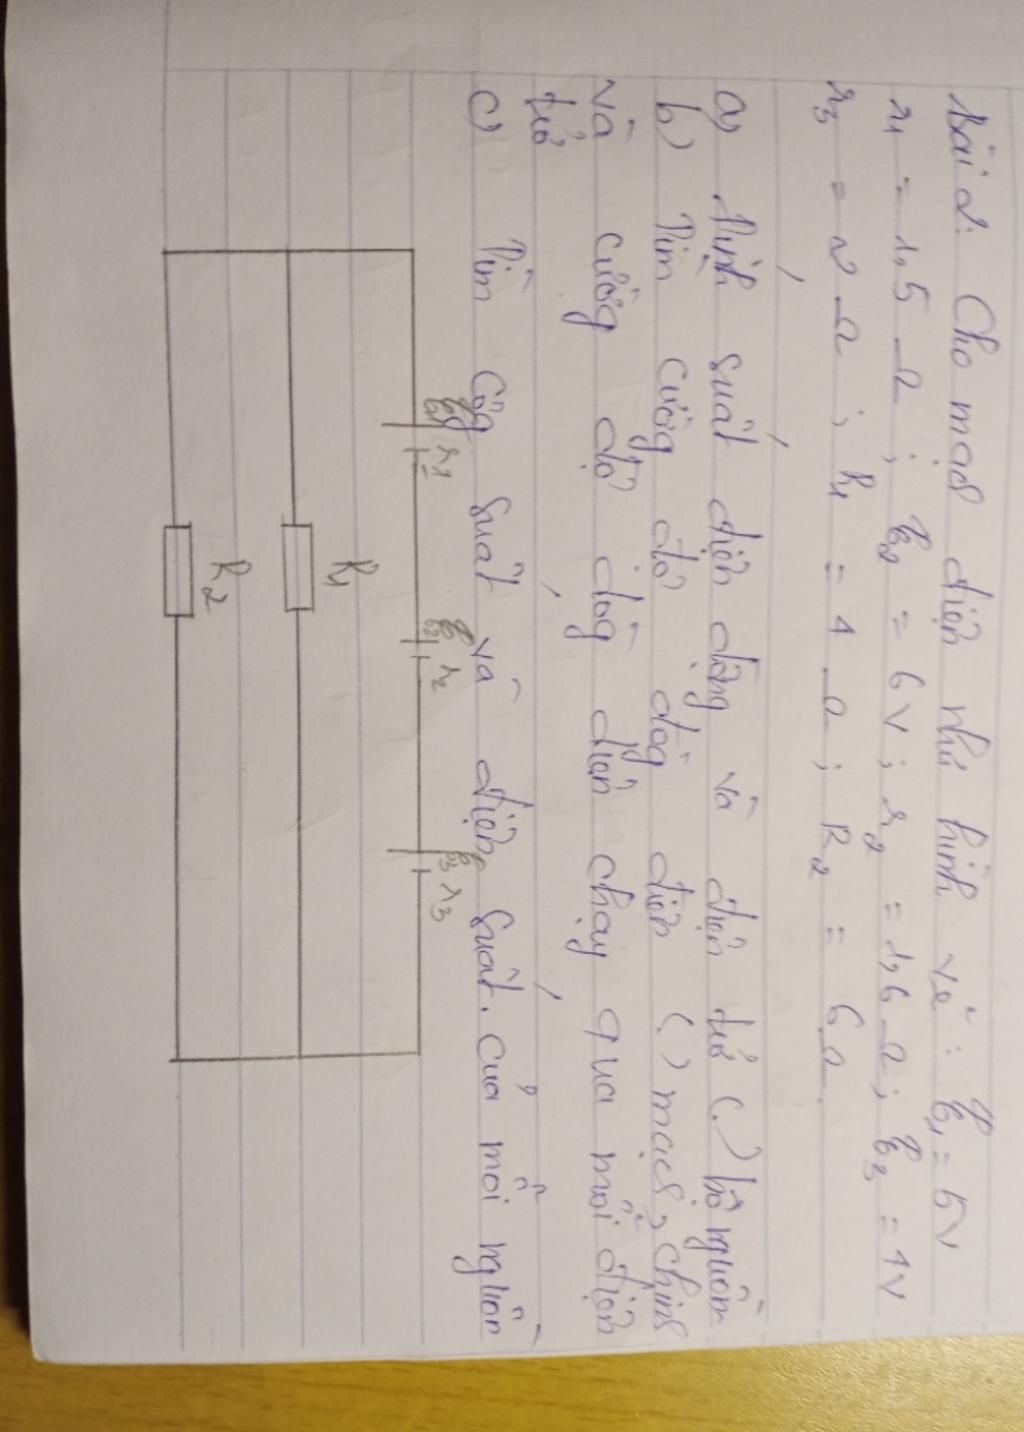 Bài 2: Cho mạch điện như hình vẽ: ξ1 = 5V
r1 = 1,5 Ω; ξ2 = 6V; r2 = 1,6 Ω; ξ3 = 4V
r3 = 2 Ω; R1 = 4 Ω; R2 = 6 Ω.
a) Tính suất điện động và điện trở (.) bộ nguồn
b) Tìm cường độ dòng điện () mạch chính
và cường độ dòng điện chạy qua mỗi điện
trở
c) Tìm công suất và điện suất của mỗi nguồn
ξ1 r1
ξ2 r2
ξ3 r3
R1
R2